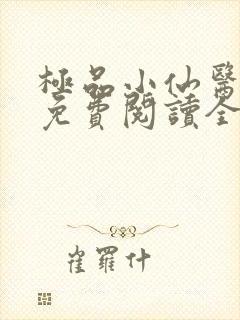 極品小仙醫
免費閱讀全
崔羅什